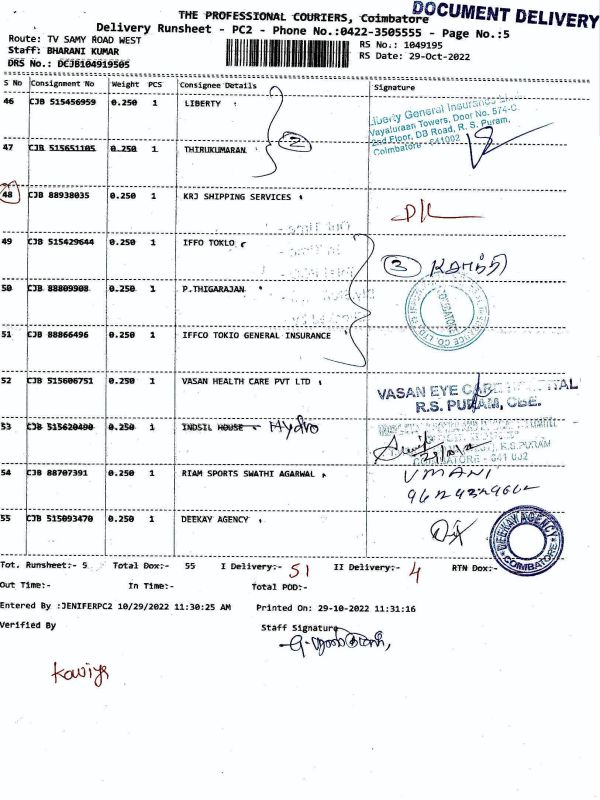 DOCUMENT DELIVERY
THE PROFESSIONAL COURIERS, Coimbatore
Delivery Runsheet - PC2 - Phone No.:0422-3505555 - Page No.:5
Route: TV SAMY ROAD WEST
RS No.: 1049195
Staff: BHARANI KUMAR
RS Date: 29-Oct-2022
DRS No.: DCJB104919505
S No Consignment No Weight PCS Consignee Details Signature
46 CJB 515456959 0.250 1 LIBERTY
Liberty General Insurance
Vayaluraan Towers, Door No. 574-C
2nd Floor, DB Road, R. S. Puram,
Coimbatore - 641002
47 CJB 515651105 0.250 1 THIRUKUMARAN
2
48 CJB 88938035 0.250 1 KRJ SHIPPING SERVICES
49 CJB 515429644 0.250 1 IFFO TOKLO
3
50 CJB 88809908 0.250 1 P.THIGARAJAN
51 CJB 88866496 0.250 1 IFFCO TOKIO GENERAL INSURANCE
52 CJB 515606751 0.250 1 VASAN HEALTH CARE PVT LTD
VASAN EYE CARE HOSPITAL
R.S. PURAM, CBE.
53 CJB 515620490 0.250 1 INDSIL HOUSE Hydro
R.S.PURAM
COIMBATORE - 641 002
54 CJB 88707391 0.250 1 RIAM SPORTS SWATHI AGARWAL
UMANI
55 CJB 515093470 0.250 1 DEEKAY AGENCY
DEEKAY AGENCY
COIMBATORE
Tot. Runsheet:- 5 Total Dox:- 55 I Delivery:- 51 II Delivery:- 4 RTN Dox:-
Out Time:- In Time:- Total POD:-
Entered By :JENIFERPC2 10/29/2022 11:30:25 AM Printed On: 29-10-2022 11:31:16
Verified By Staff Signature
Kawiya